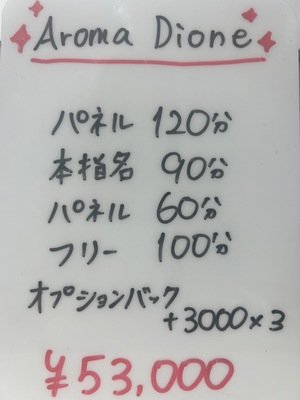 Aroma Dione
パネル 120分
本指名 90分
パネル 60分
フリー 100分
オプションバック
+3000×3
¥53,000